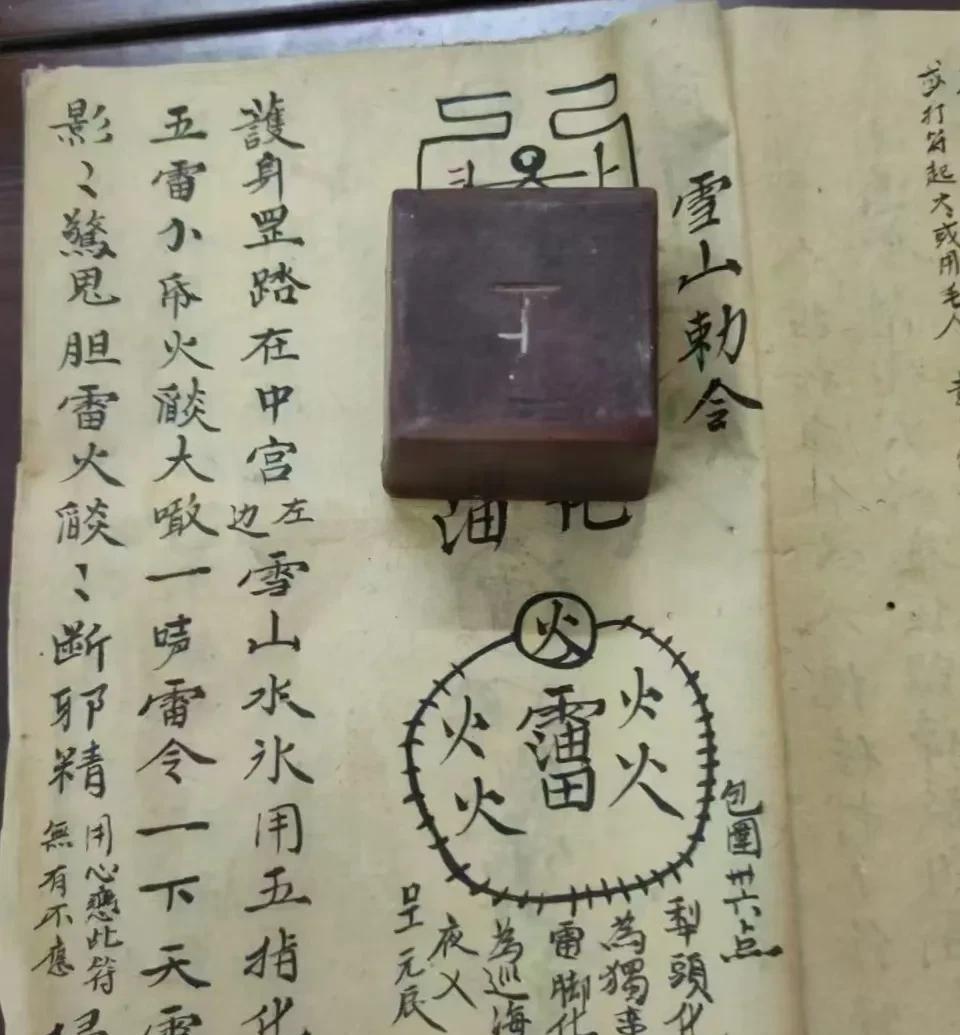 或打符起大或用毛人
雪山勅令
火
雷
火
火
火
火
包圍卅六点
犁頭化
為獨
雷脚化
為巡海
夜乂
元辰
護身罡踏在中宮左边雪山水氷用五指化
五雷小鬼火燄大噉一声雷令一下天雷
影〻驚鬼胆雷火燄〻断邪精用心恋此符無有不應